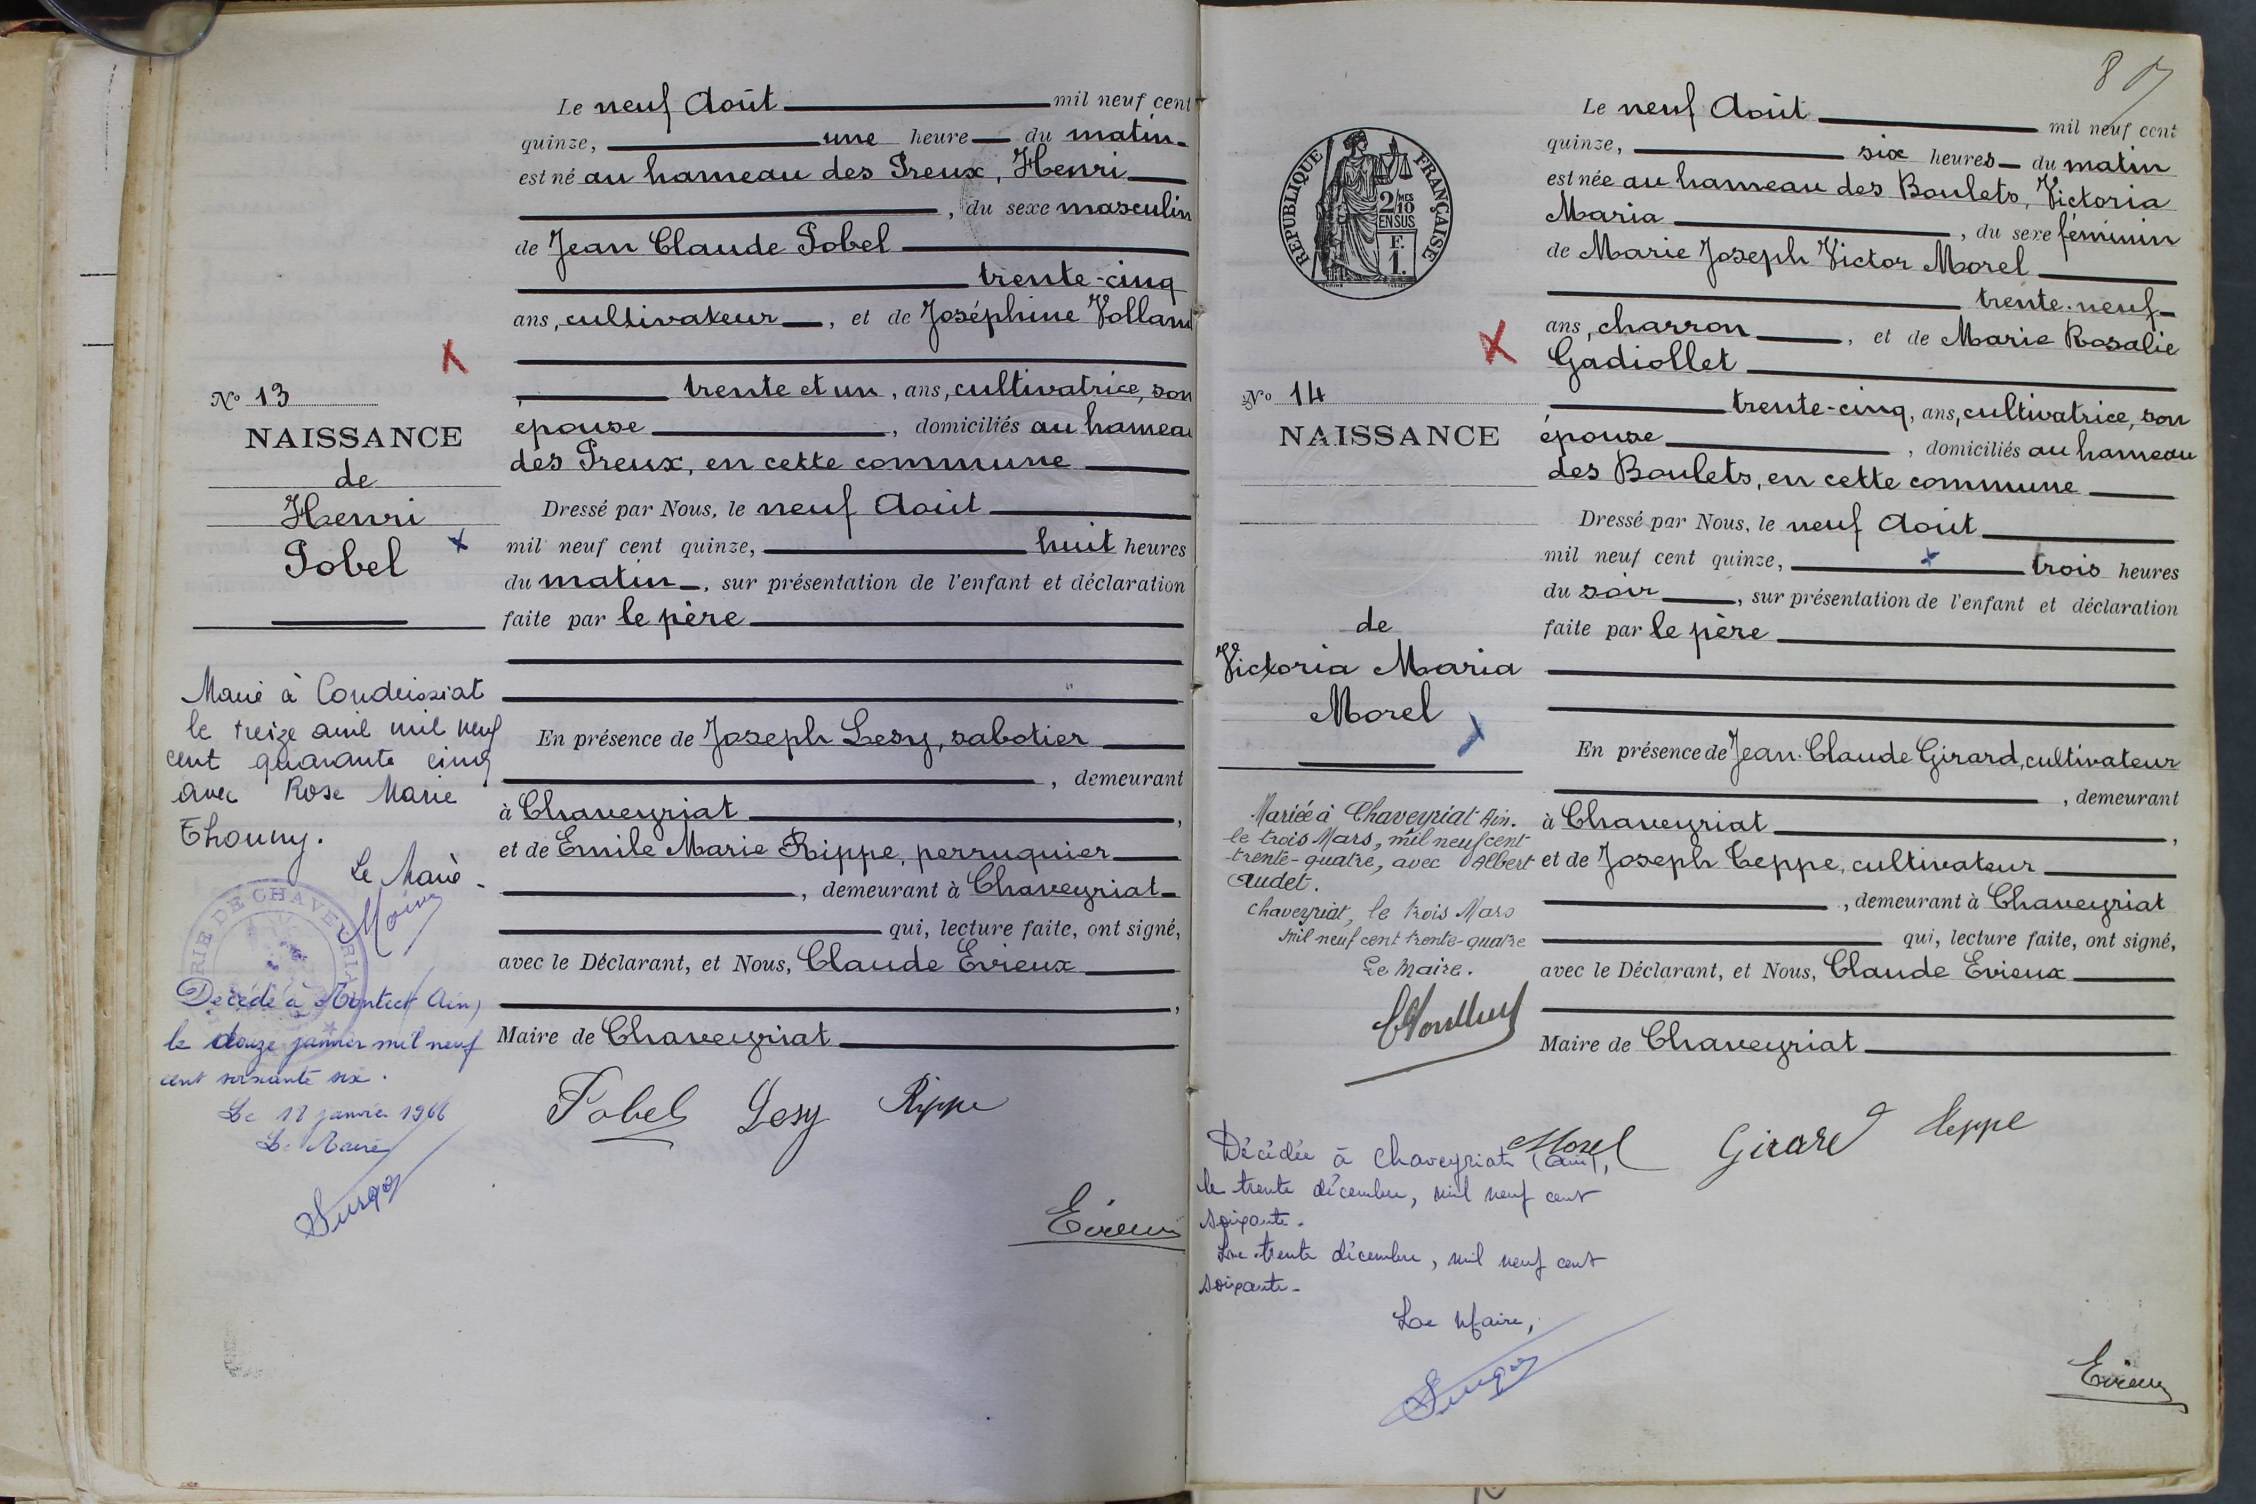 Le neuf Août mil neuf cent
quinze, une heure du matin
est né au hameau des Preux, Henri
, du sexe masculin
de Jean Claude Pobel
trente-cinq
ans, cultivateur, et de Joséphine Volland
trente et un, ans, cultivatrice, son
épouse, domiciliés au hameau
des Preux, en cette commune
Dressé par Nous, le neuf Août
mil neuf cent quinze, huit heures
du matin, sur présentation de l'enfant et déclaration
faite par le père
En présence de Joseph Lesy, sabotier
, demeurant
à Chaveyriat,
et de Emile Marie Rippe, perruquier
, demeurant à Chaveyriat
qui, lecture faite, ont signé,
avec le Déclarant, et Nous, Claude Evieux
,
Maire de Chaveyriat
Pobel Lesy Rippe
Evieux
No 13
NAISSANCE
de
Henri
Pobel
Marié à Condeissiat
le treize avril mil neuf
cent quarante cinq
avec Rose Marie
Thouny.
Le Maire
MAIRIE DE CHAVEYRIAT
Décédé à Montcet (Ain)
le douze janvier mil neuf
cent soixante six.
Le 12 janvier 1966
Le Maire
87
Le neuf Août mil neuf cent
quinze, six heures du matin
est née au hameau des Boulets, Victoria
Maria, du sexe féminin
de Marie Joseph Victor Morel
trente-neuf
ans, charron, et de Marie Rosalie
Gadiollet
trente-cinq, ans, cultivatrice, son
épouse, domiciliés au hameau
des Boulets, en cette commune
Dressé par Nous, le neuf Août
mil neuf cent quinze, trois heures
du soir, sur présentation de l'enfant et déclaration
faite par le père
En présence de Jean-Claude Girard, cultivateur
, demeurant
à Chaveyriat,
et de Joseph Teppe, cultivateur
, demeurant à Chaveyriat
qui, lecture faite, ont signé,
avec le Déclarant, et Nous, Claude Evieux
Maire de Chaveyriat
Morel Girard Teppe
Evieux
RÉPUBLIQUE FRANÇAISE
2/10 MES
EN SUS
F.
1.
No 14
NAISSANCE
de
Victoria Maria
Morel
Mariée à Chaveyriat Ain.
le trois Mars, mil neuf cent
trente-quatre, avec Albert
Audet.
Chaveyriat, le trois Mars
mil neuf cent trente-quatre
Le Maire.
Décédée à Chaveyriat (Ain),
le trente décembre, mil neuf cent
soixante.
Le trente décembre, mil neuf cent
soixante.
Le Maire,